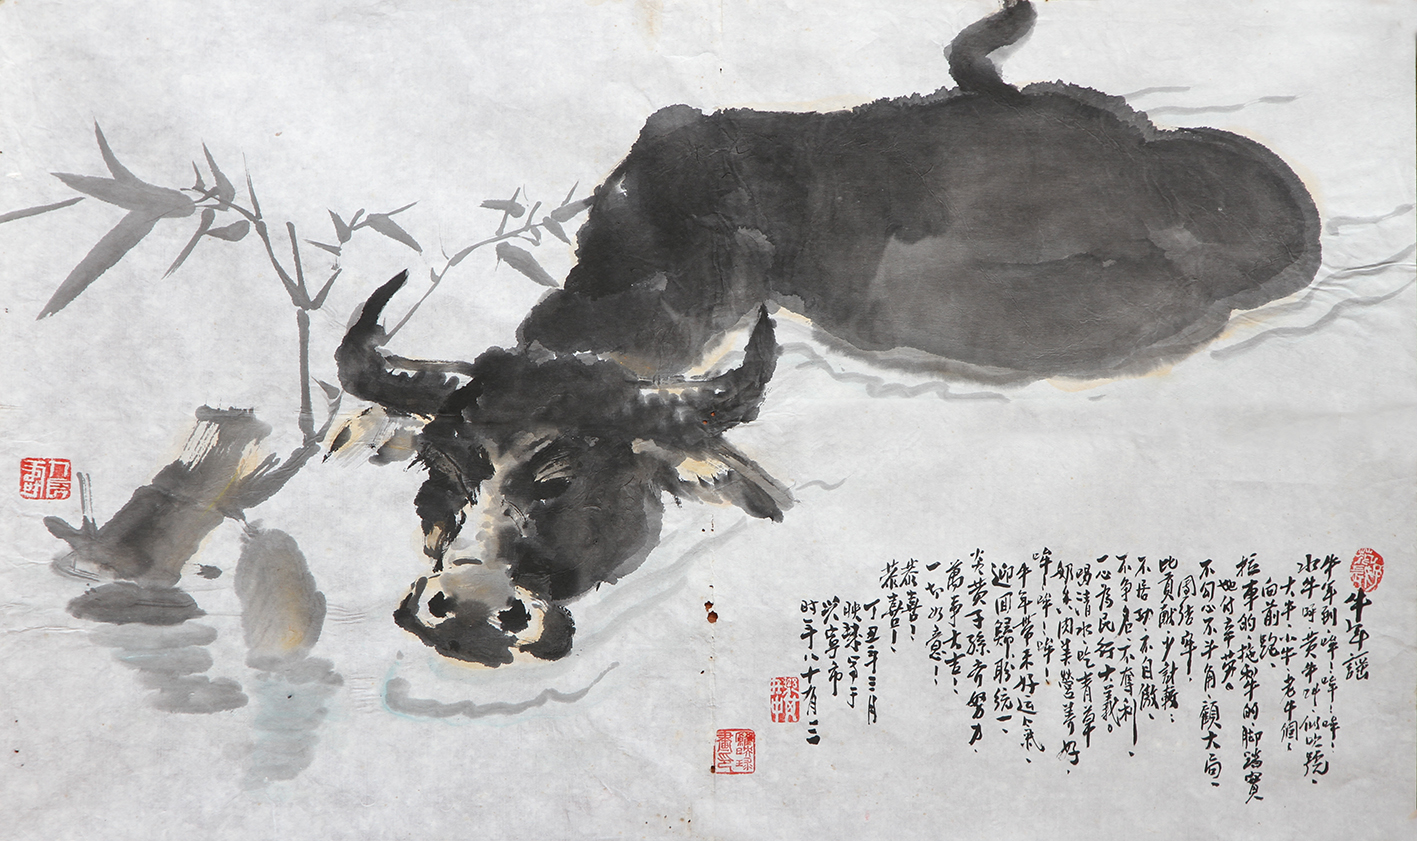 牛年謡
牛年到哞哞哞，
水牛呼黄牛叫似吹號，
大牛小牛老牛個個
向前跑，
拉車的拖犁的脚踏實
地付辛勞。
不勾心不斗角顧大局，
團結牢，
比貢獻少計較，
不居功不自傲，
不争名不奪利，
一心為民行大義。
喝清水吃青草
奶多肉美營养好，
哞！哞！哞！
牛年帶來好运氣，
迎回歸盼統一，
炎黄子孫齐努力，
萬事大吉！
一切如意！
恭喜！
恭喜！
丁丑年三月
映球写于
兴寧市
时年八十有二